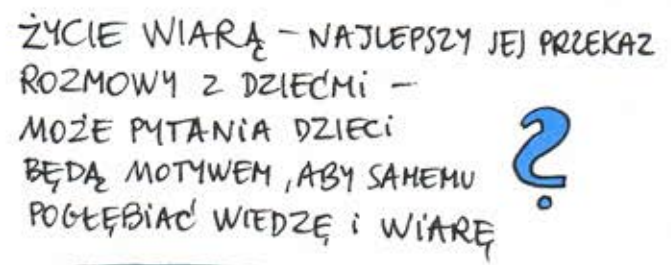 ŻYCIE WIARĄ – NAJLEPSZY JEJ PRZEKAZ
ROZMOWY Z DZIEĆMI –
MOŻE PYTANIA DZIECI
BĘDĄ MOTYWEM, ABY SAMEMU
POGŁĘBIAĆ WIEDZĘ i WIARĘ
?